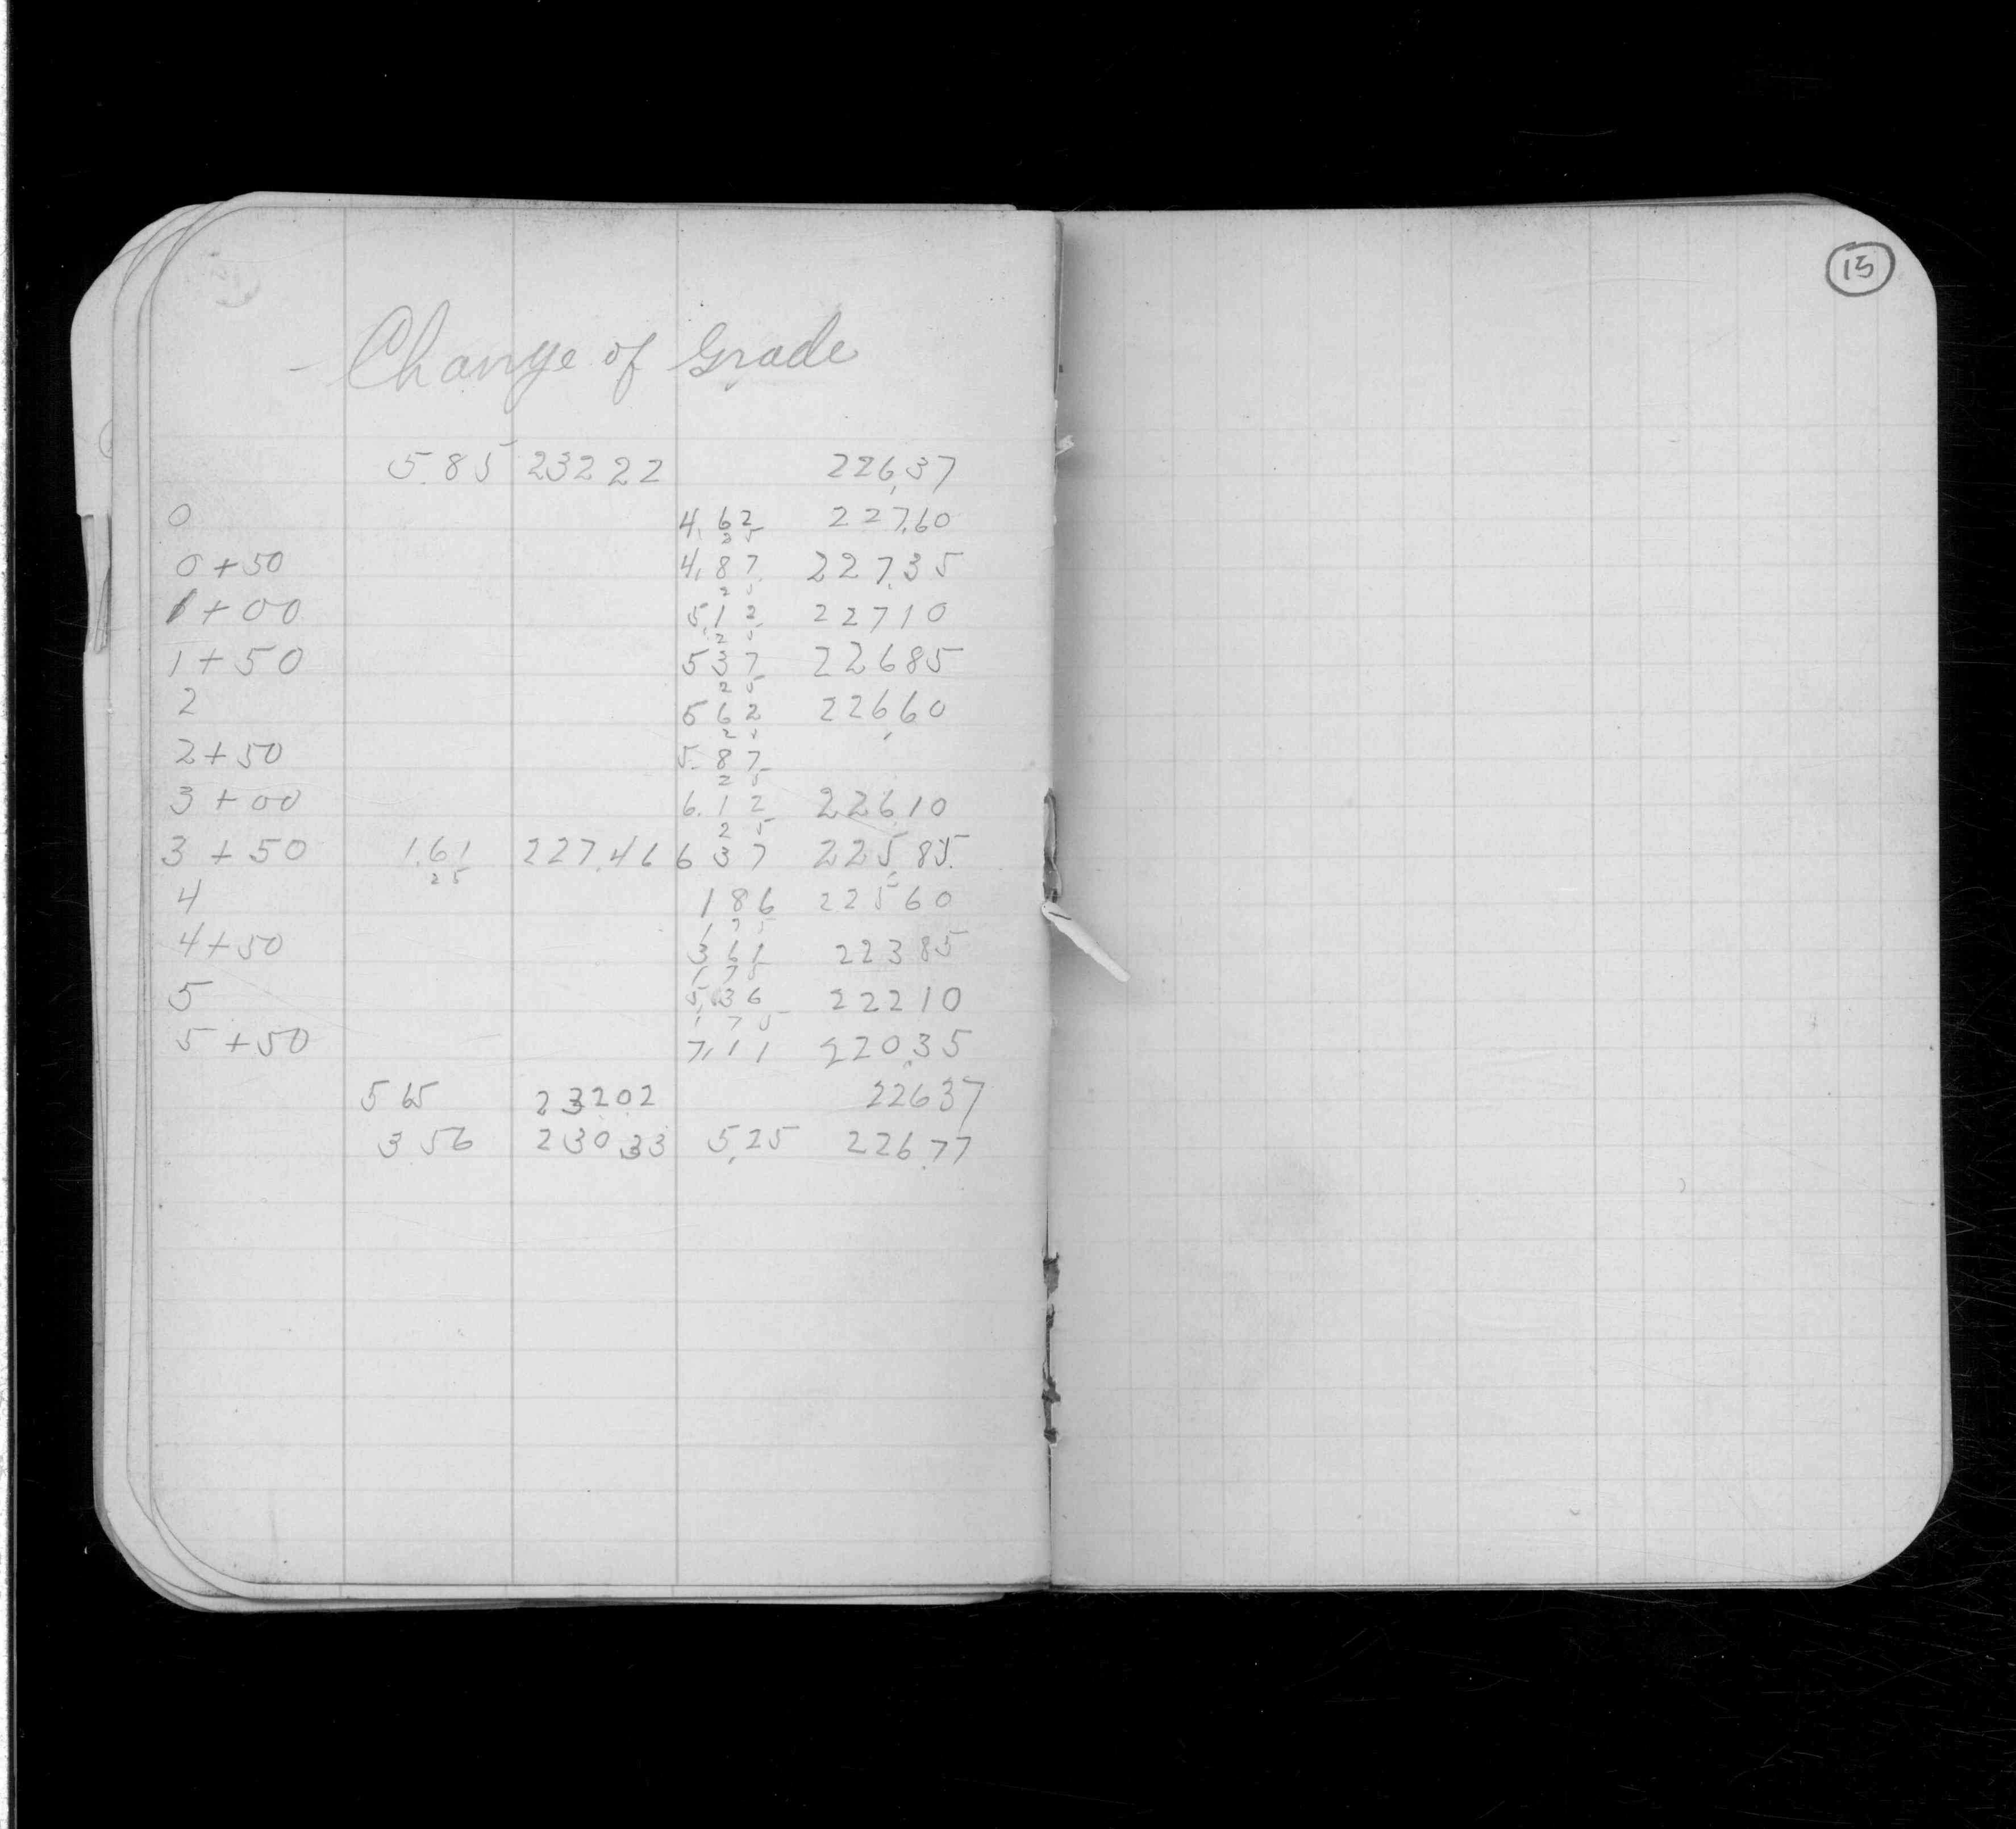 15
- Change of Grade
5.85 232 22 226.37
0 4.62 227.60
25
0+50 4.87 227.35
25
1+00 5.12 22710
25
1+50 537 22685
25
2 562 226.60
25
2+50 5.87
25
3+00 6.12 226.10
25
3+50 1.61 227.46 637 225.85
25
4 186 22560
1 75
4+50 361 22385
1 75
5 5.36 22210
1 75
5+50 7.11 220.35
565 23202 22637
356 230.33 5.25 226.77